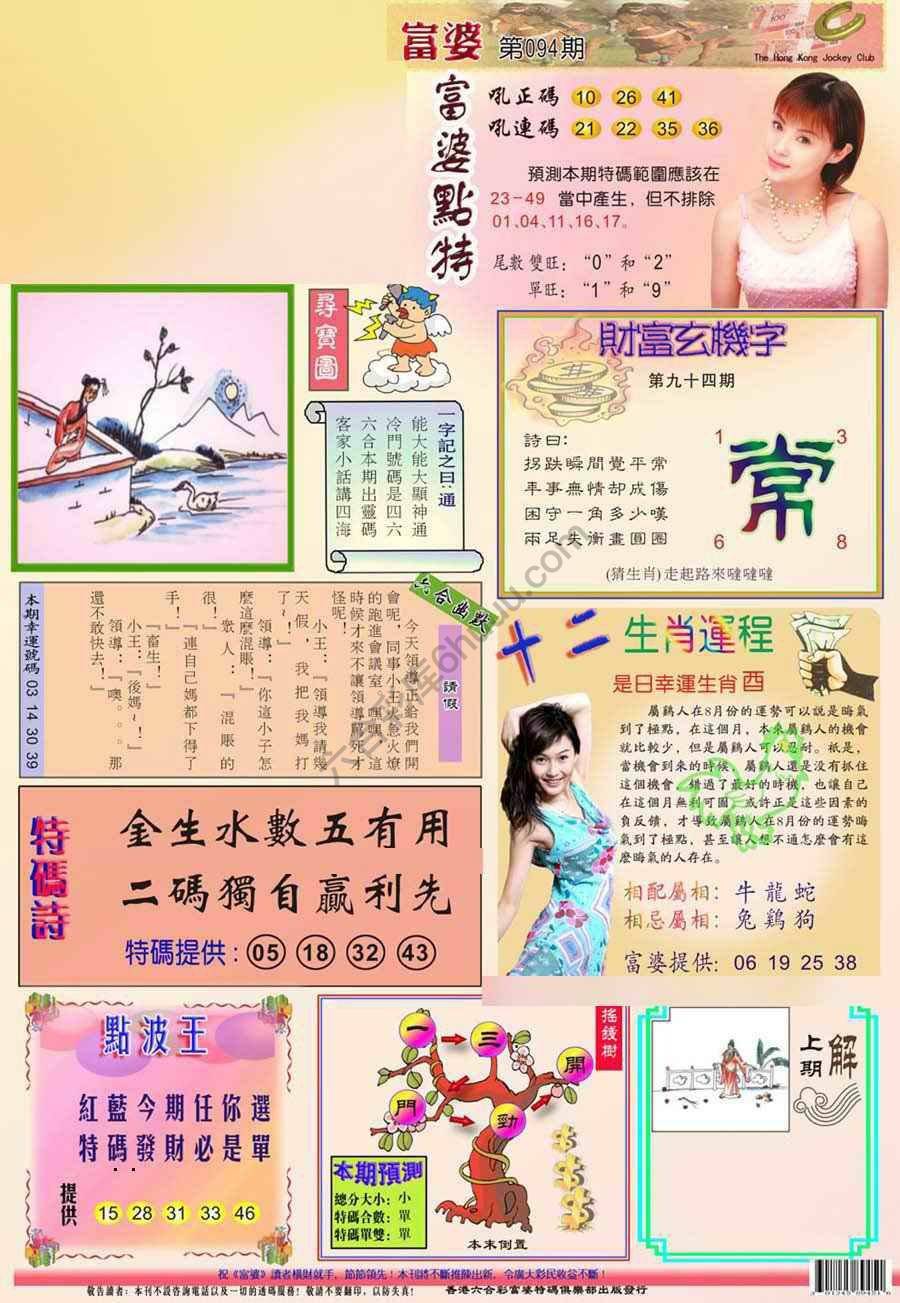 富婆 第094期
The Hong Kong Jockey Club
富婆點特
吼正碼 10 26 41
吼連碼 21 22 35 36
預測本期特碼範圍應該在
23-49 當中產生，但不排除
01、04、11、16、17。
尾數雙旺：“0”和“2”
單旺：“1”和“9”
尋寶圖
一字記之曰：通
能大能大顯神通
冷門號碼是四六
六合本期出靈碼
客家小話講四海
財富玄機字
第九十四期
詩曰：
拐跌瞬間覺平常
車事無情却成傷
困守一角多少嘆
兩足失衡畫圓圈
1 3
常
6 8
(猜生肖)走起路來噠噠噠
六合幽默
請假
今天領導正給我們開
會呢，同事小王火急火燎
的跑進會議室，嘿嘿，這
時候才來不讓領導罵死才
怪呢！
小王：『領導我請幾
天假，我把我媽打
了~！
領導：『你這小子怎
麼這麼混賬！
衆人：『混賬的
很！
『連自己媽都下得了
手！
『畜生！』
小王：『後媽~！』
領導：『噢。。。那
還不敢快去！』
本期幸運號碼 03 14 30 39
十二生肖運程
是日幸運生肖酉
屬鷄人在8月份的運勢可以說是晦氣
到了極點，在這個月，本來屬鷄人的機會
就比較少，但是屬鷄人可以忍耐。祇是，
當機會到來的時候，屬鷄人還是没有抓住
這個機會，錯過了最好的時機，也讓自己
在這個月無利可圖，或許正是這些因素的
負反饋，才導致屬鷄人在8月份的運勢晦
氣到了極點，甚至讓人想不通怎麼會有這
麼晦氣的人存在。
相配屬相：牛 龍 蛇
相忌屬相：兔 鷄 狗
富婆提供：06 19 25 38
特碼詩
金生水數五有用
二碼獨自贏利先
特碼提供：05 18 32 43
點波王
紅藍今期任你選
特碼發財必是單
提供 15 28 31 33 46
搖錢樹
一 三 開
門 勁
本期預測
總分大小：小
特碼合數：單
特碼單雙：單
本末倒置
上期解
祝《富婆》讀者橫財就手，節節領先！本刊將不斷推陳出新，令廣大彩民收益不斷！
敬告讀者：本刊不設咨詢電話以及一切的透碼服務！敬請不要翻印，以防失真！ 香港六合彩富婆特碼俱樂部出版發行